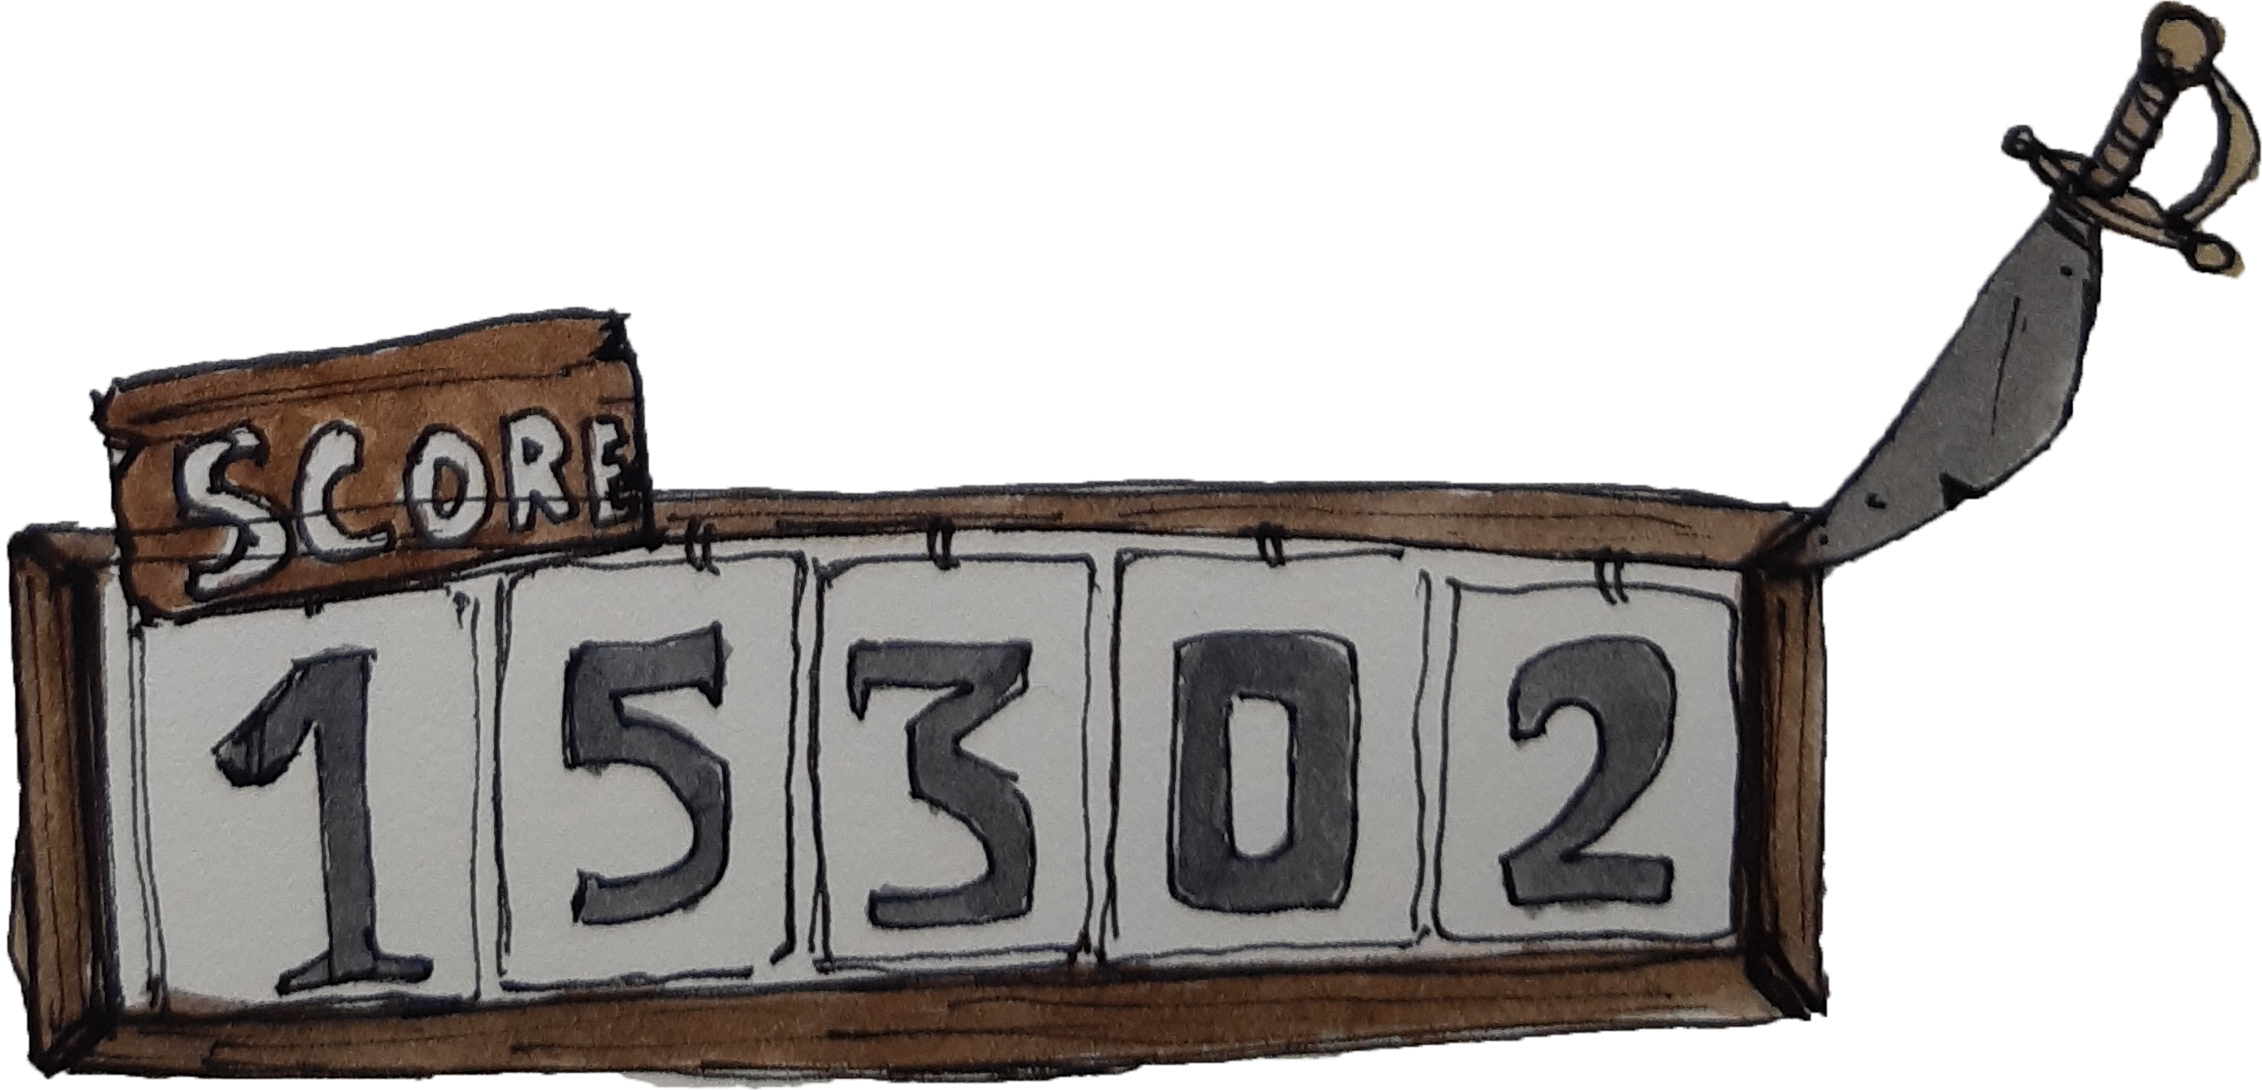 SCORE
15302